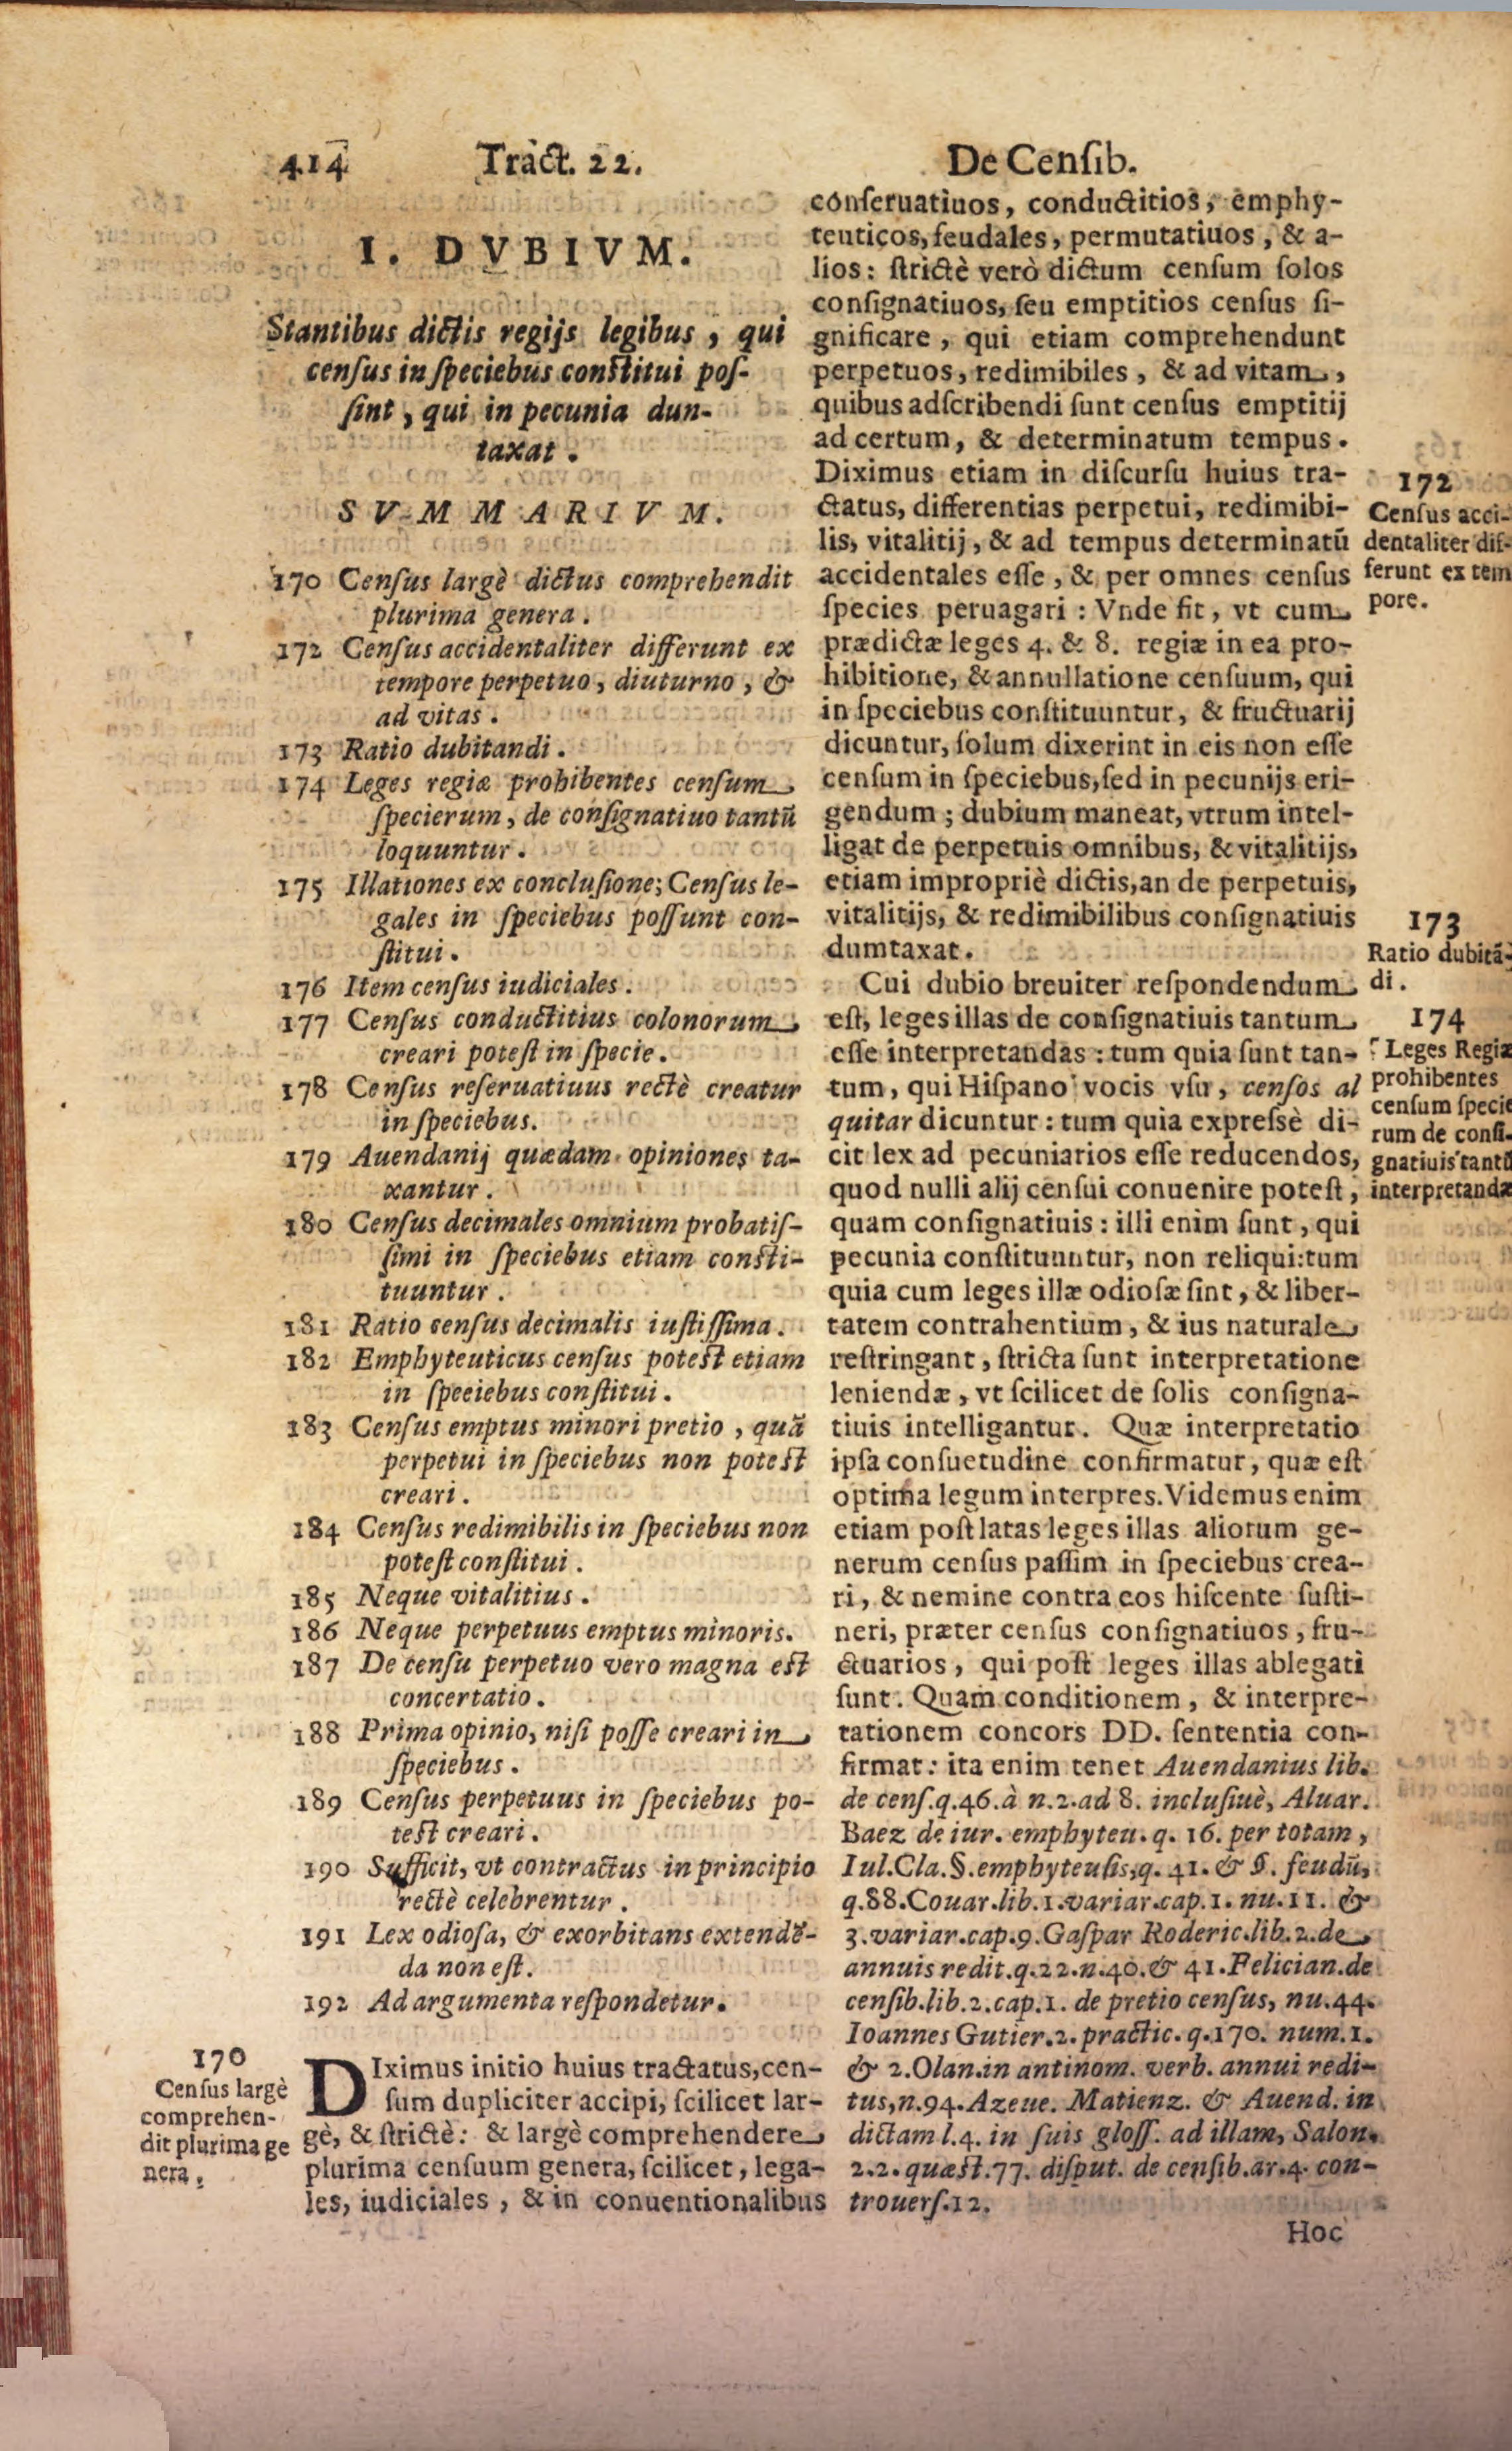 414 Tract. 22. De Censib.
I. DVBIVM.
Stantibus dictis regijs legibus, qui
census in speciebus constitui pos-
sint, qui in pecunia dun-
taxat.
SVMMARIVM.
170 Census largè dictus comprehendit
plurima genera.
172 Census accidentaliter differunt ex
tempore perpetuo, diuturno, &
ad vitas.
173 Ratio dubitandi.
174 Leges regiæ prohibentes censum
specierum, de consignatiuo tantũ
loquuntur.
175 Illationes ex conclusione; Census le-
gales in speciebus possunt con-
stitui.
176 Item census iudiciales.
177 Census conductitius colonorum
creari potest in specie.
178 Census reseruatiuus rectè creatur
in speciebus.
179 Auendanij quædam opiniones ta-
xantur.
180 Census decimales omnium probatis-
simi in speciebus etiam consti-
tuuntur.
181 Ratio census decimalis iustissima.
182 Emphyteuticus census potest etiam
in speciebus constitui.
183 Census emptus minori pretio, quã
perpetui in speciebus non potest
creari.
184 Census redimibilis in speciebus non
potest constitui.
185 Neque vitalitius.
186 Neque perpetuus emptus minoris.
187 De censu perpetuo vero magna est
concertatio.
188 Prima opinio, nisi posse creari in
speciebus.
189 Census perpetuus in speciebus po-
test creari.
190 Sufficit, vt contractus in principio
rectè celebrentur.
191 Lex odiosa, & exorbitans extendẽ-
da non est.
192 Ad argumenta respondetur.
170
Census largè
comprehen-
dit plurima ge
nera.
DIximus initio huius tractatus, cen-
sum dupliciter accipi, scilicet lar-
gè, & strictè: & largè comprehendere
plurima censuum genera, scilicet, lega-
les, iudiciales, & in conuentionalibus
conseruatiuos, conductitios, emphy-
teuticos, feudales, permutatiuos, & a-
lios: strictè verò dictum censum solos
consignatiuos, seu emptitios census si-
gnificare, qui etiam comprehendunt
perpetuos, redimibiles, & ad vitam,
quibus adscribendi sunt census emptitij
ad certum, & determinatum tempus.
Diximus etiam in discursu huius tra-
ctatus, differentias perpetui, redimibi-
lis, vitalitij, & ad tempus determinatũ
accidentales esse, & per omnes census
species peruagari: Vnde fit, vt cum
prædictæ leges 4. & 8. regiæ in ea pro-
hibitione, & annullatione censuum, qui
in speciebus constituuntur, & fructuarij
dicuntur, solum dixerint in eis non esse
censum in speciebus, sed in pecunijs eri-
gendum; dubium maneat, vtrum intel-
ligat de perpetuis omnibus, & vitalitijs,
etiam impropriè dictis, an de perpetuis,
vitalitijs, & redimibilibus consignatiuis
dumtaxat.
Cui dubio breuiter respondendum
est, leges illas de consignatiuis tantum
esse interpretandas: tum quia sunt tan-
tum, qui Hispano vocis vsu, censos al
quitar dicuntur: tum quia expressè di-
cit lex ad pecuniarios esse reducendos,
quod nulli alij censui conuenire potest,
quam consignatiuis: illi enim sunt, qui
pecunia constituuntur, non reliqui: tum
quia cum leges illæ odiosæ sint, & liber-
tatem contrahentium, & ius naturale
restringant, stricta sunt interpretatione
leniendæ, vt scilicet de solis consigna-
tiuis intelligantur. Quæ interpretatio
ipsa consuetudine confirmatur, quæ est
optima legum interpres. Videmus enim
etiam post latas leges illas aliorum ge-
nerum census passim in speciebus crea-
ri, & nemine contra eos hiscente susti-
neri, præter census consignatiuos, fru-
ctuarios, qui post leges illas ablegati
sunt. Quam conditionem, & interpre-
tationem concors DD. sententia con-
firmat: ita enim tenet Auendanius lib.
de cens. q. 46. à n. 2. ad 8. inclusiuè, Aluar.
Baez de iur. emphyteu. q. 16. per totam,
Iul. Cla. §. emphyteusis, q. 41. & §. feudũ,
q. 88. Couar. lib. 1. variar. cap. 1. nu. 11. &
3. variar. cap. 9. Gaspar Roderic. lib. 2. de
annuis redit. q. 22. n. 40. & 41. Felician. de
censib. lib. 2. cap. 1. de pretio census, nu. 44.
Ioannes Gutier. 2. practic. q. 170. num. 1.
& 2. Olan. in antinom. verb. annui redi-
tus, n. 94. Azeue. Matienz. & Auend. in
dictam l. 4. in suis gloss. ad illam, Salon.
2. 2. quæst. 77. disput. de censib. ar. 4. con-
trouers. 12.
Hoc
172
Census acci-
dentaliter dif-
ferunt ex tem
pore.
173
Ratio dubitã-
di.
174
Leges Regiæ
prohibentes
censum specie
rum de consi-
gnatiuis tantũ
interpretandæ